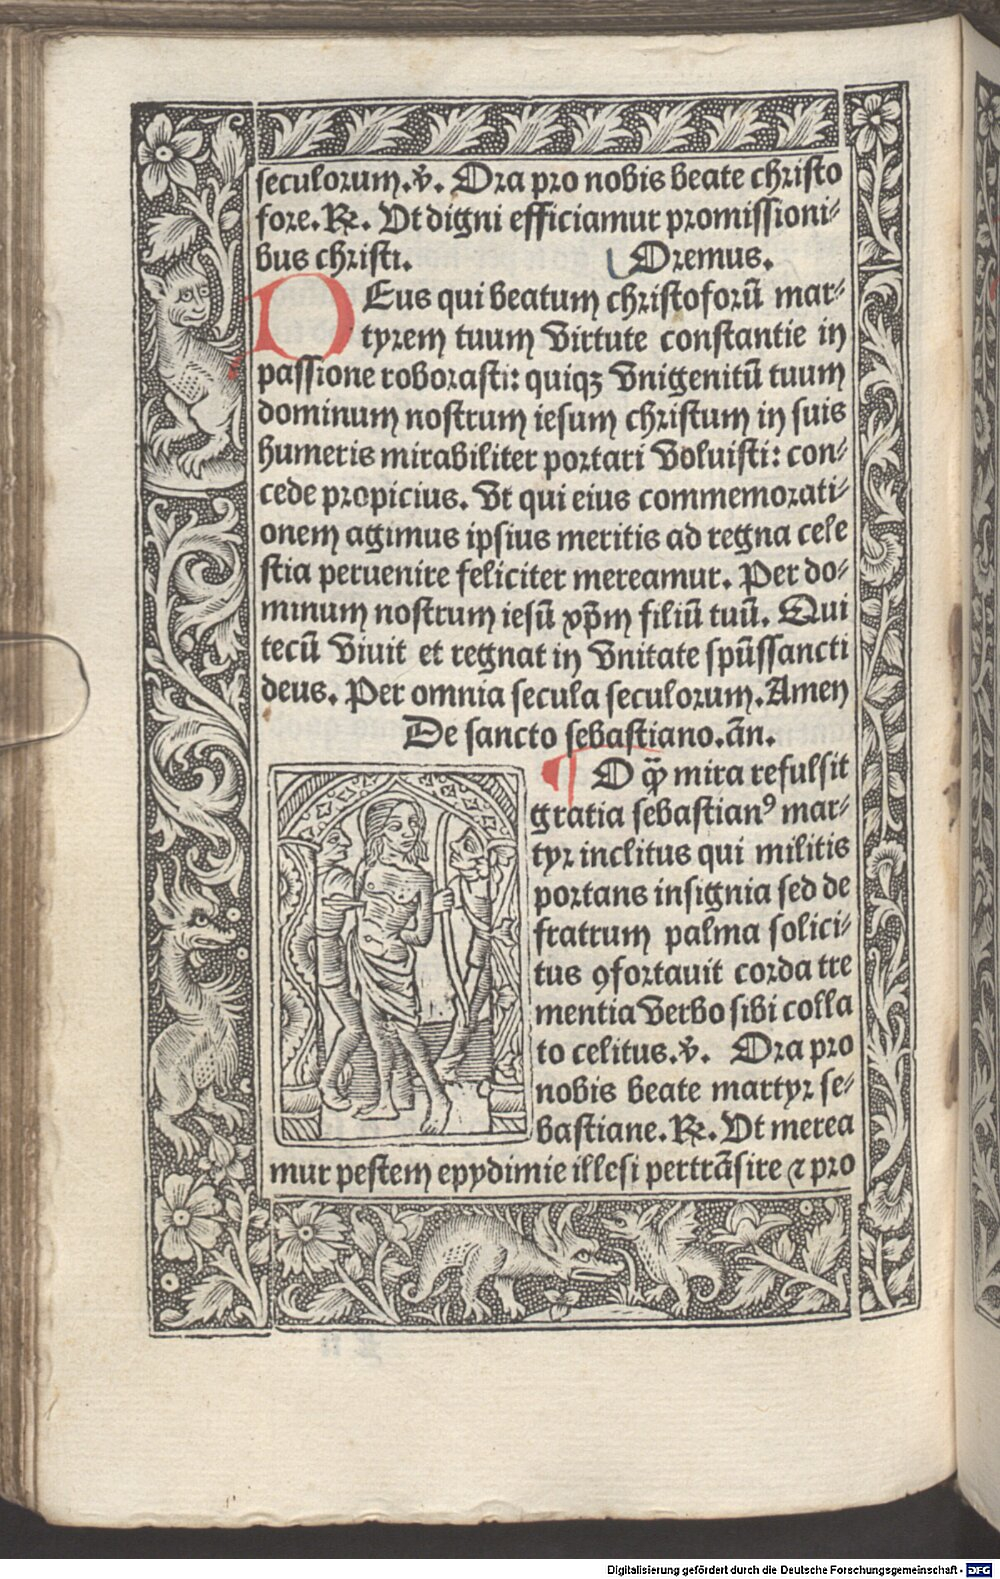 seculorum.℣. Ora pro nobis beate christo
fore.℟. Vt digni efficiamur promissioni⸗
bus christi. Oremus.
DEus qui beatum christoforū mar⸗
tyrem tuum virtute constantie in
passione roborasti: quiqꝫ vnigenitū tuum
dominum nostrum iesum christum in suis
humeris mirabiliter portari voluisti: con⸗
cede propicius. vt qui eius commemorati⸗
onem agimus ipsius meritis ad regna cele
stia peruenire feliciter mereamur. Per do⸗
minum nostrum iesū xp̄m filiū tuū. Qui
tecū viuit et regnat in vnitate spūssancti
deus. Per omnia secula seculorum. Amen
De sancto sebastiano. an̄.
¶ O qͣ̄ mira refulsit
gratia sebastianꝰ mar⸗
tyr inclitus qui militis
portans insignia sed de
fratrum palma solici⸗
tus ꝯfortauit corda tre
mentia verbo sibi colla
to celitus.℣. Ora pro
nobis beate martyr se⸗
bastiane.℟. Vt merea
mur pestem epydimie illesi pertrāsire ⁊ pro
Digitalisierung gefördert durch die Deutsche Forschungsgemeinschaft - DFG